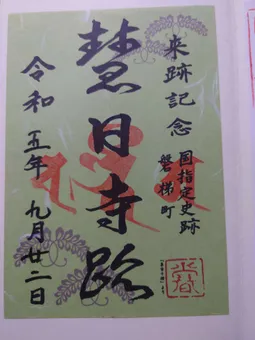 来跡記念
国指定史跡
磐梯町
慧日寺跡
令和五年 九月廿二日